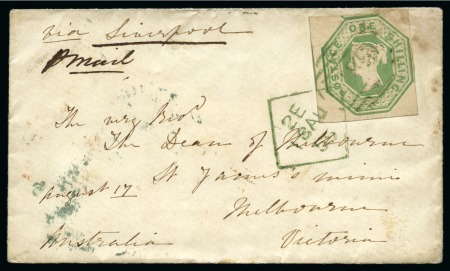 via Liverpool
p mail
POSTAGE ONE SHILLING
The very Revd
The Dean of Melbourne
St James's
august 17
Melbourne
Australia Victoria